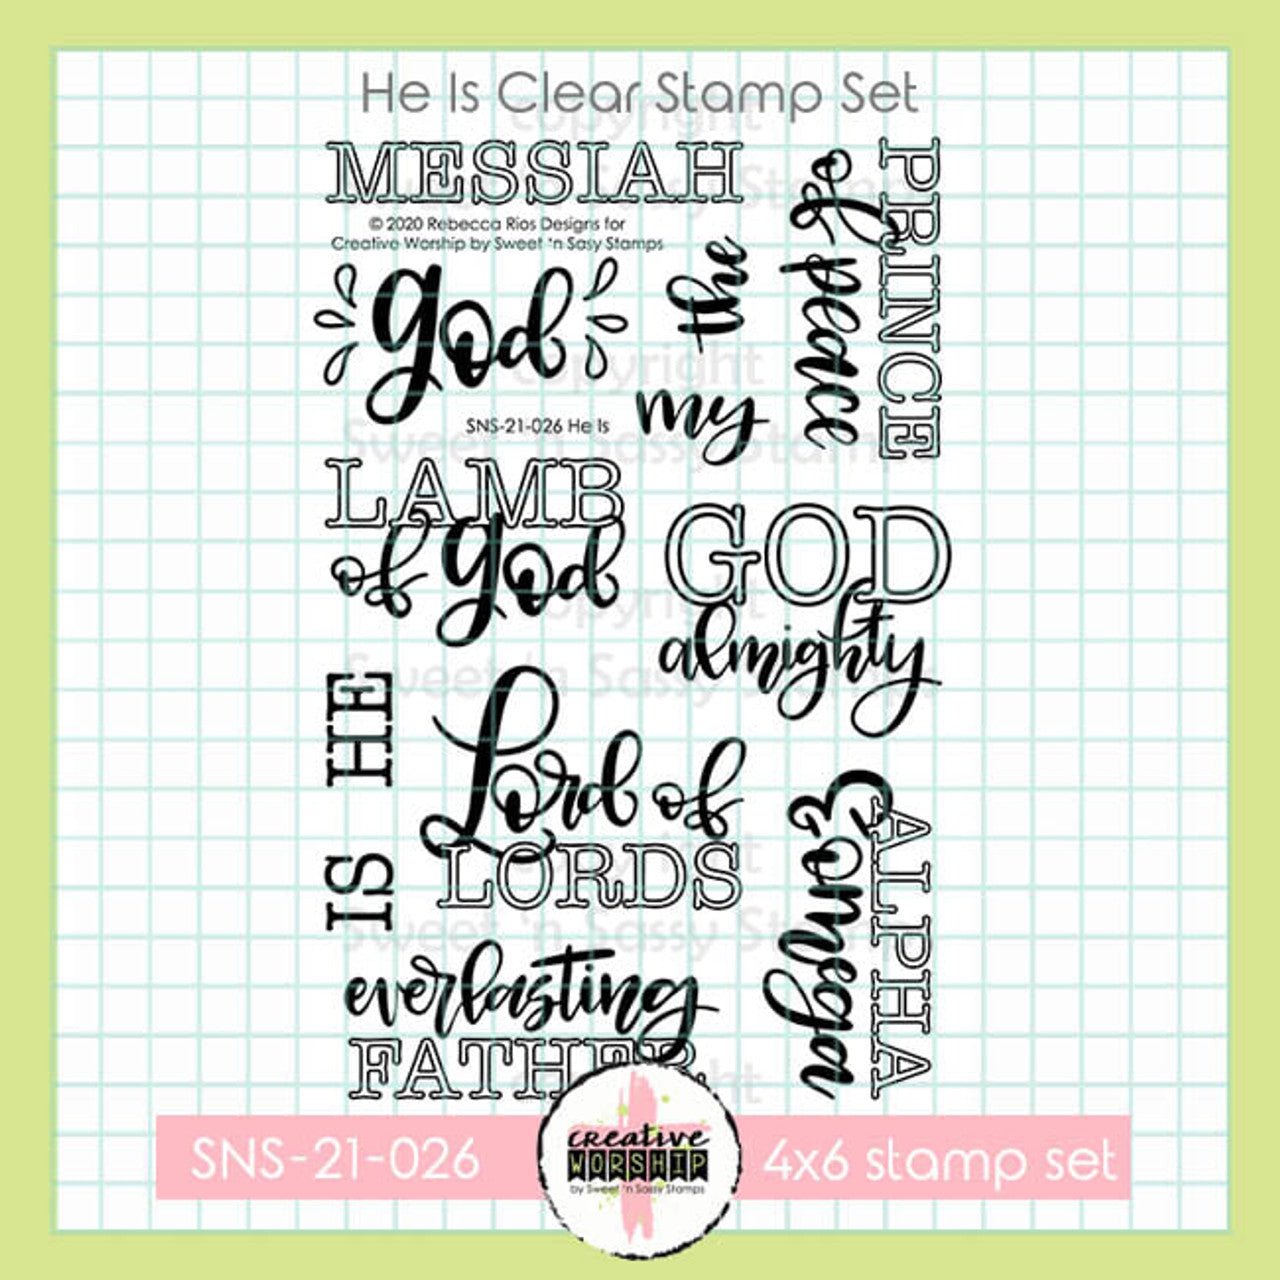 He Is Clear Stamp Set
MESSIAH
© 2020 Rebecca Rios Designs for
Creative Worship by Sweet 'n Sasy Stamps
PRINCE
of peace
god
the
my
SNS-21-026 He Is
LAMB
of god
GOD
almighty
HE
IS
Lord of
LORDS
ALPHA
& omega
everlasting
FATHER
SNS-21-026
creative
WORSHIP
by Sweet 'n Sassy Stamps
4x6 stamp set
copyright
Sweet 'n Sassy Stamps
copyright
Sweet 'n Sassy Stamps
copyright
Sweet 'n Sassy Stamps
copyright
Sweet 'n Sassy Stamps
copyright